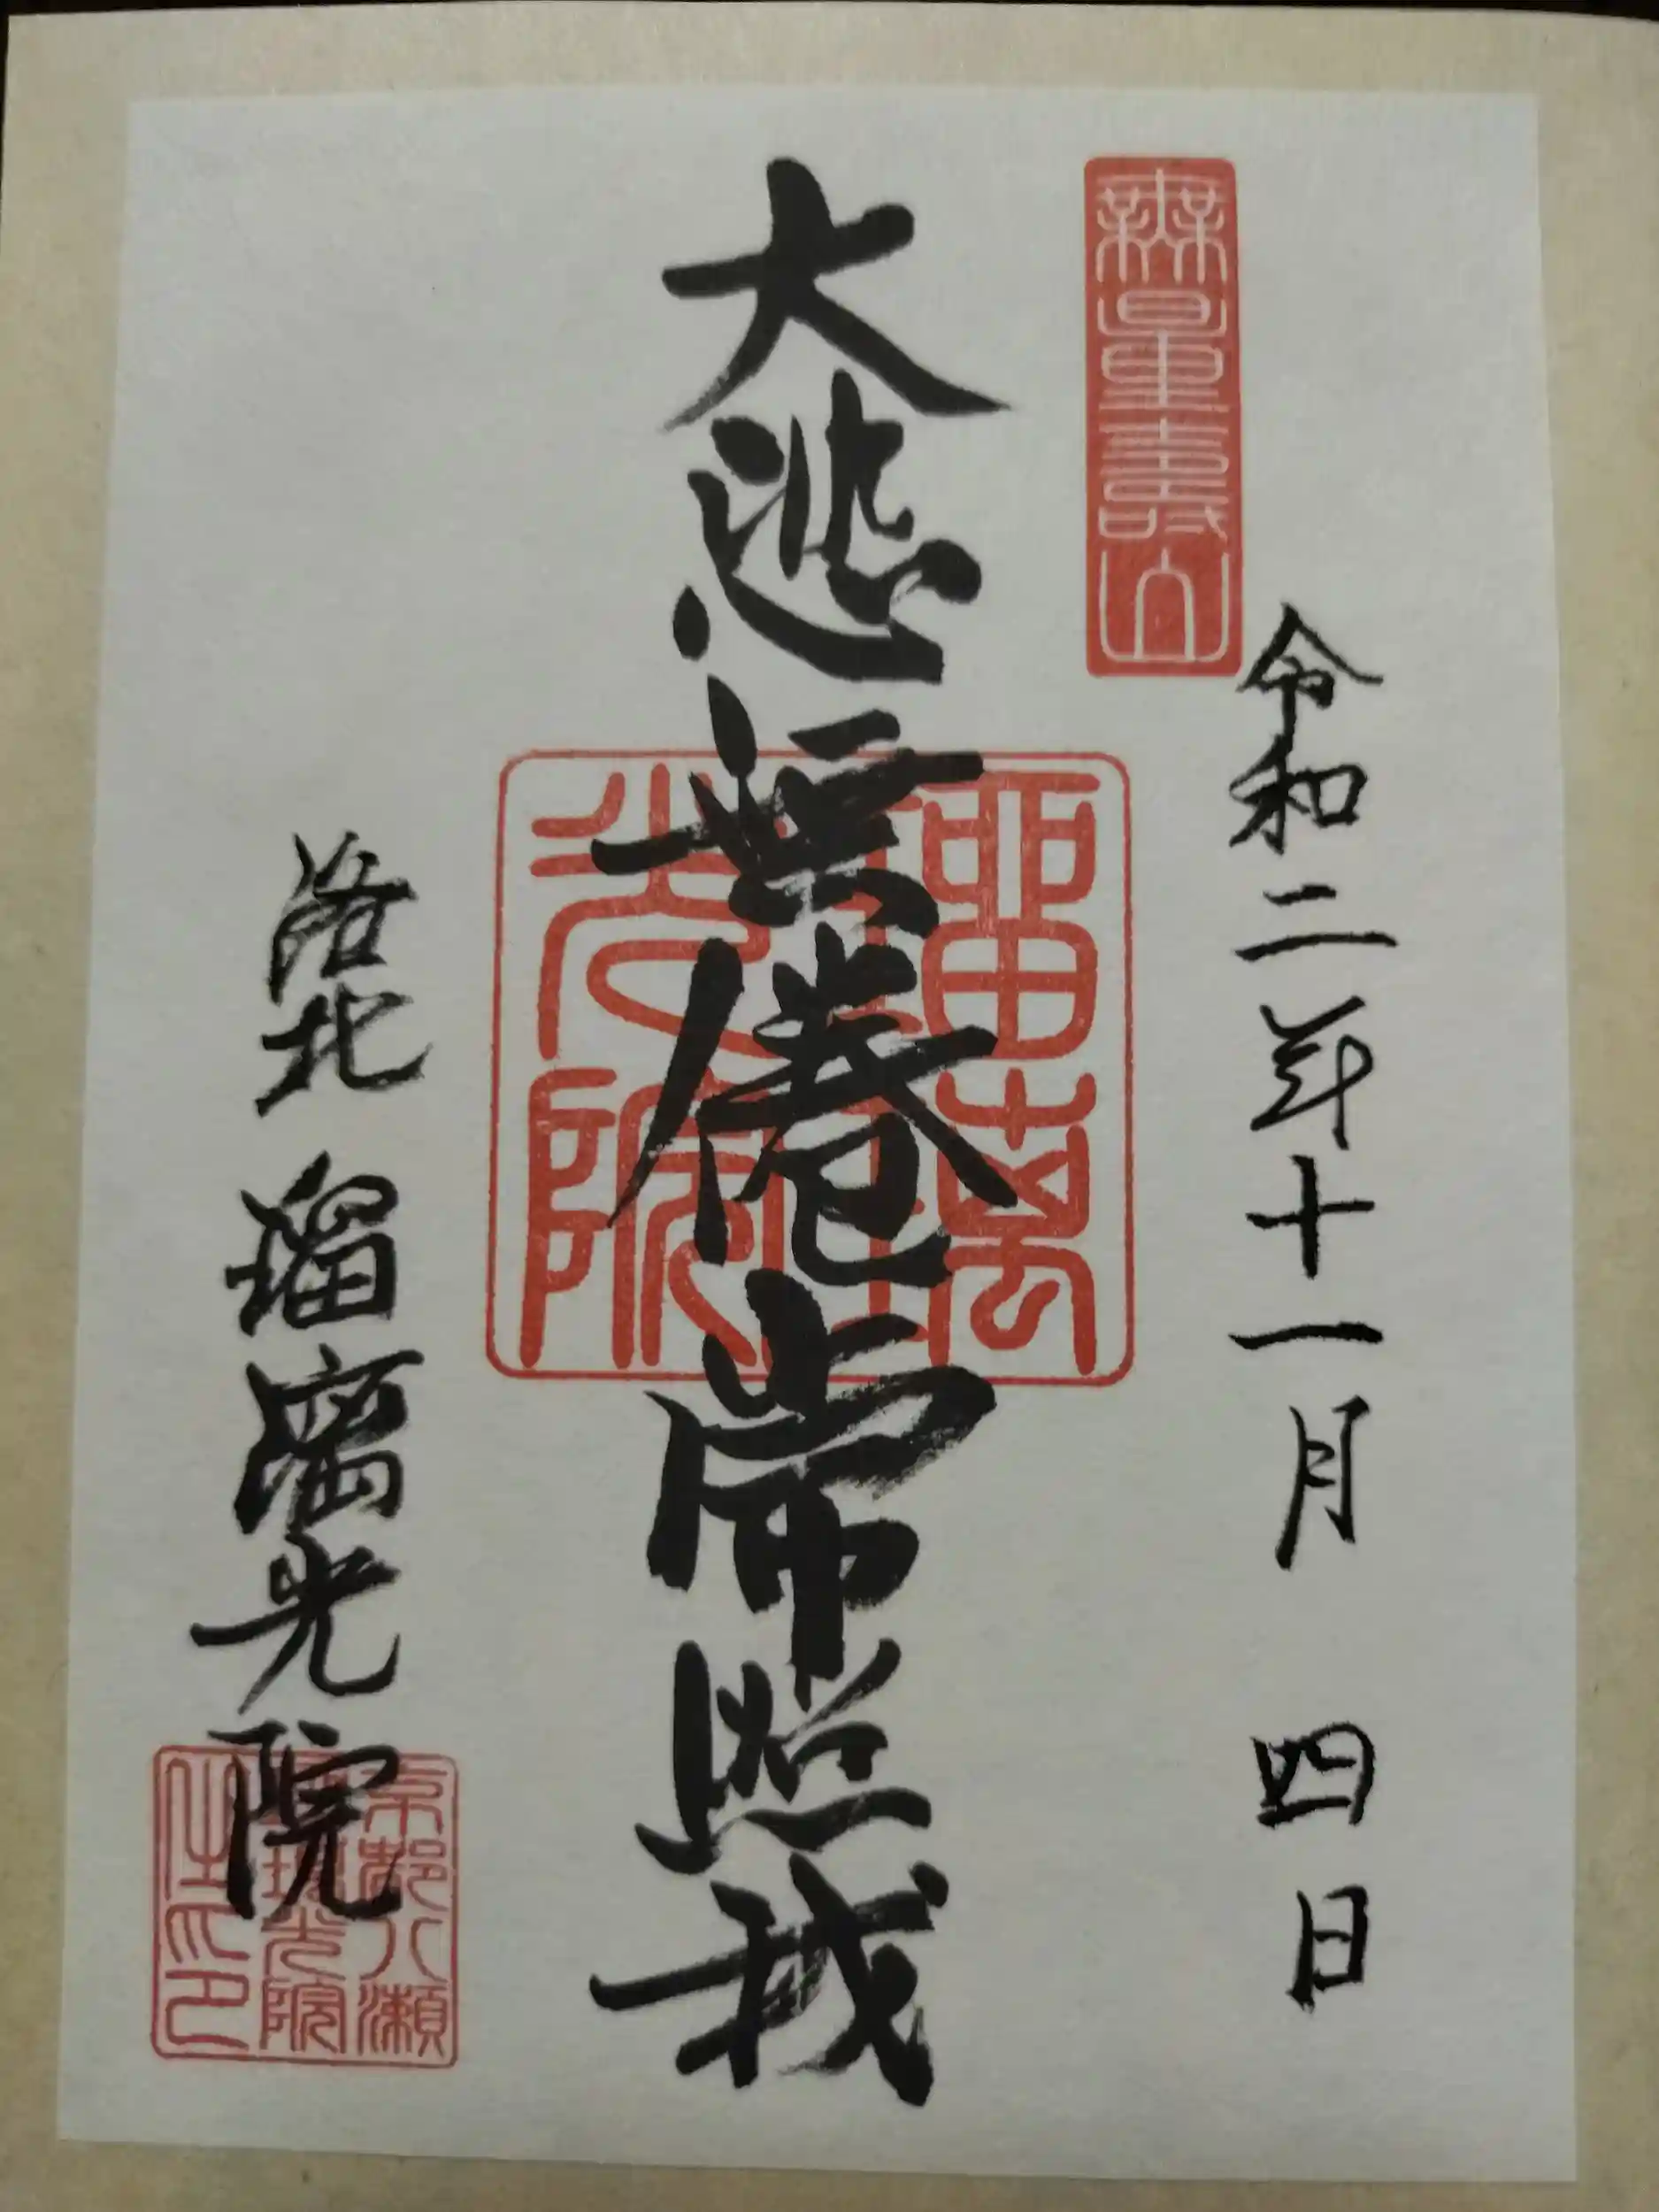 無量壽山
令和二年十一月 四日
大悲無倦常照我
洛北 瑠璃光院
京都八瀬
光院
住印